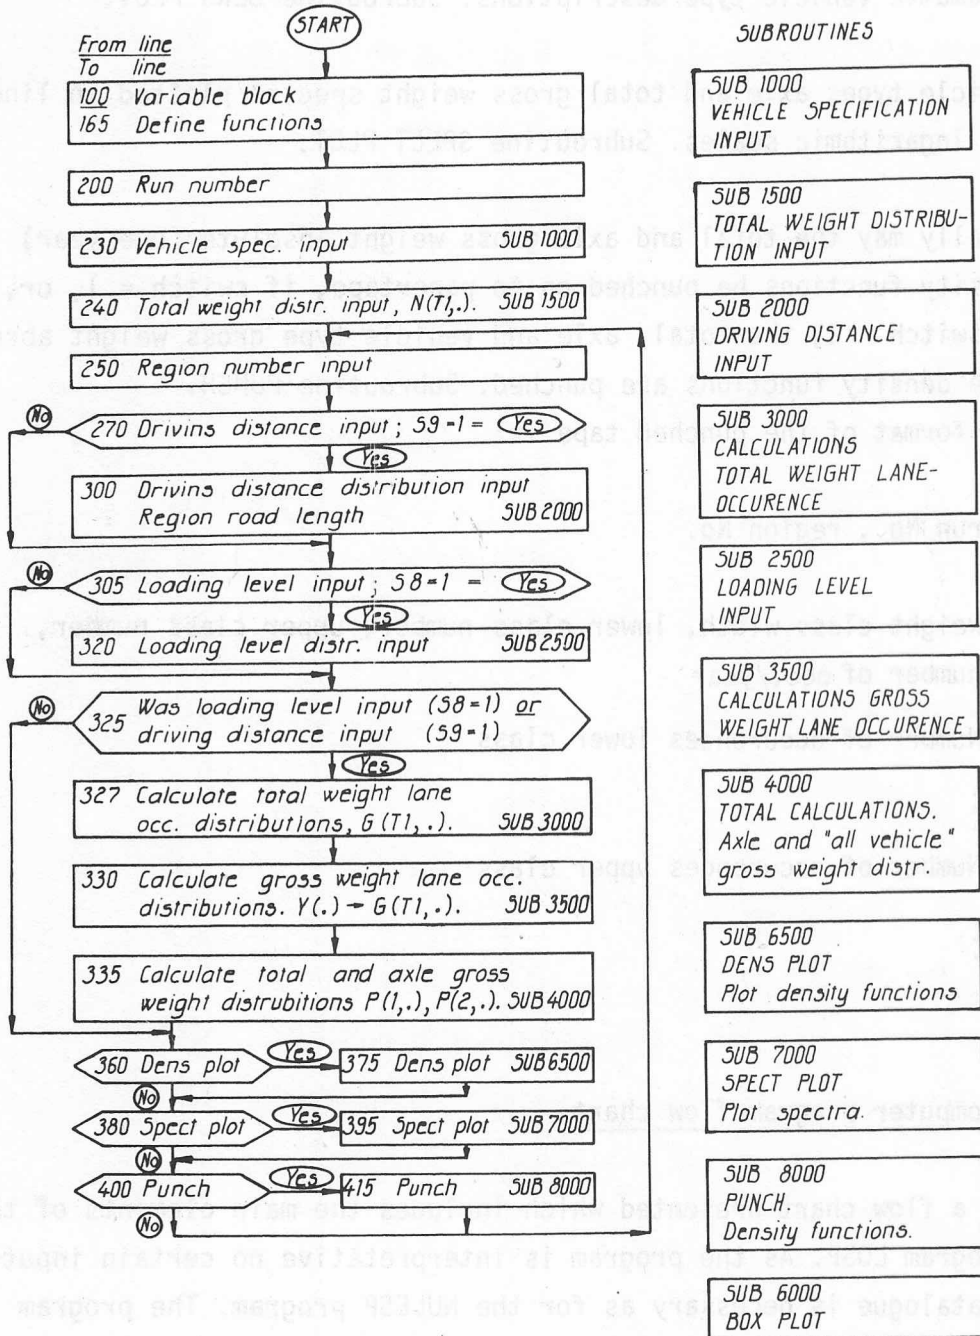 START
From line
To line
100 Variable block
165 Define functions
200 Run number
230 Vehicle spec. input SUB 1000
240 Total weight distr. input, N(T1,.). SUB 1500
250 Region number input
No
270 Drivins distance input; S9=1 = Yes
Yes
300 Drivins distance distribution input
Region road length SUB 2000
No
305 Loading level input; S8=1 = Yes
Yes
320 Loading level distr. input SUB 2500
No
325 Was loading level input (S8=1) or
driving distance input (S9=1)
Yes
327 Calculate total weight lane
occ. distributions, G(T1,.). SUB 3000
330 Calculate gross weight lane occ.
distributions. Y(.) → G(T1,.). SUB 3500
335 Calculate total and axle gross
weight distrubitions P(1,.), P(2,.). SUB 4000
360 Dens plot Yes 375 Dens plot SUB 6500
No
380 Spect plot Yes 395 Spect plot SUB 7000
No
400 Punch Yes 415 Punch SUB 8000
No
SUBROUTINES
SUB 1000
VEHICLE SPECIFICATION
INPUT
SUB 1500
TOTAL WEIGHT DISTRIBU-
TION INPUT
SUB 2000
DRIVING DISTANCE
INPUT
SUB 3000
CALCULATIONS
TOTAL WEIGHT LANE-
OCCURENCE
SUB 2500
LOADING LEVEL
INPUT
SUB 3500
CALCULATIONS GROSS
WEIGHT LANE OCCURENCE
SUB 4000
TOTAL CALCULATIONS.
Axle and "all vehicle"
gross weight distr.
SUB 6500
DENS PLOT
Plot density functions
SUB 7000
SPECT PLOT
Plot spectra.
SUB 8000
PUNCH
Density functions.
SUB 6000
BOX PLOT